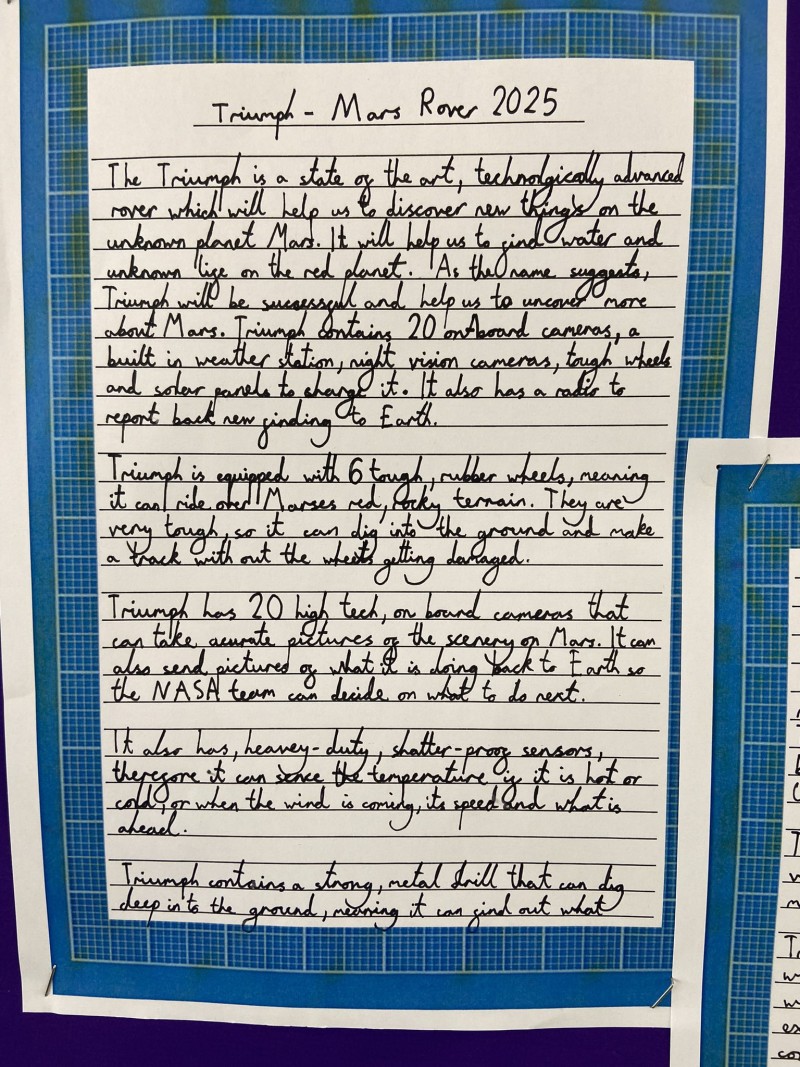 Triumph - Mars Rover 2025
The Triumph is a state of the art, technolgically advanced
rover which will help us to discover new things on the
unknown planet Mars. It will help us to find water and
unknown life on the red planet. As the name suggests,
Triumph will be successful and help us to uncover more
about Mars. Triumph contains 20 on-board cameras, a
built in weather station, night vision cameras, tough wheels
and solar panels to charge it. It also has a radio to
report back new finding to Earth.
Triumph is equipped with 6 tough, rubber wheels, meaning
it can ride over Marses red, rocky terrain. They are
very tough, so it can dig into the ground and make
a track with out the wheels getting damaged.
Triumph has 20 high tech, on board cameras that
can take acurate pictures of the scenery on Mars. It can
also send pictures of what it is doing back to Earth so
the NASA team can decide on what to do next.
It also has, heavey-duty, shatter-proof sensors,
therefore it can sence the temperature if it is hot or
cold, or when the wind is coming, its speed and what is
ahead.
Triumph contains a strong, metal drill that can dig
deep into the ground, meaning it can find out what